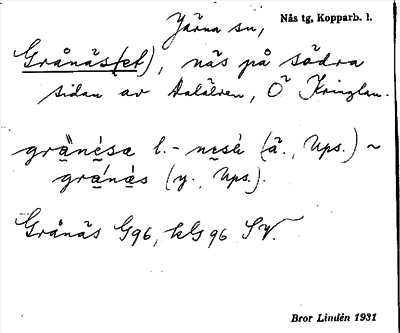 Järna sn, Nås tg, Kopparb. l.
Grånäs(et), näs på södra
sidan av Dalälven, Ö Kringlan.
l. - (ä., Ups.) ~
(y., Ups.).
Grånäs G96, kG96 SV.
Bror Lindén 1931